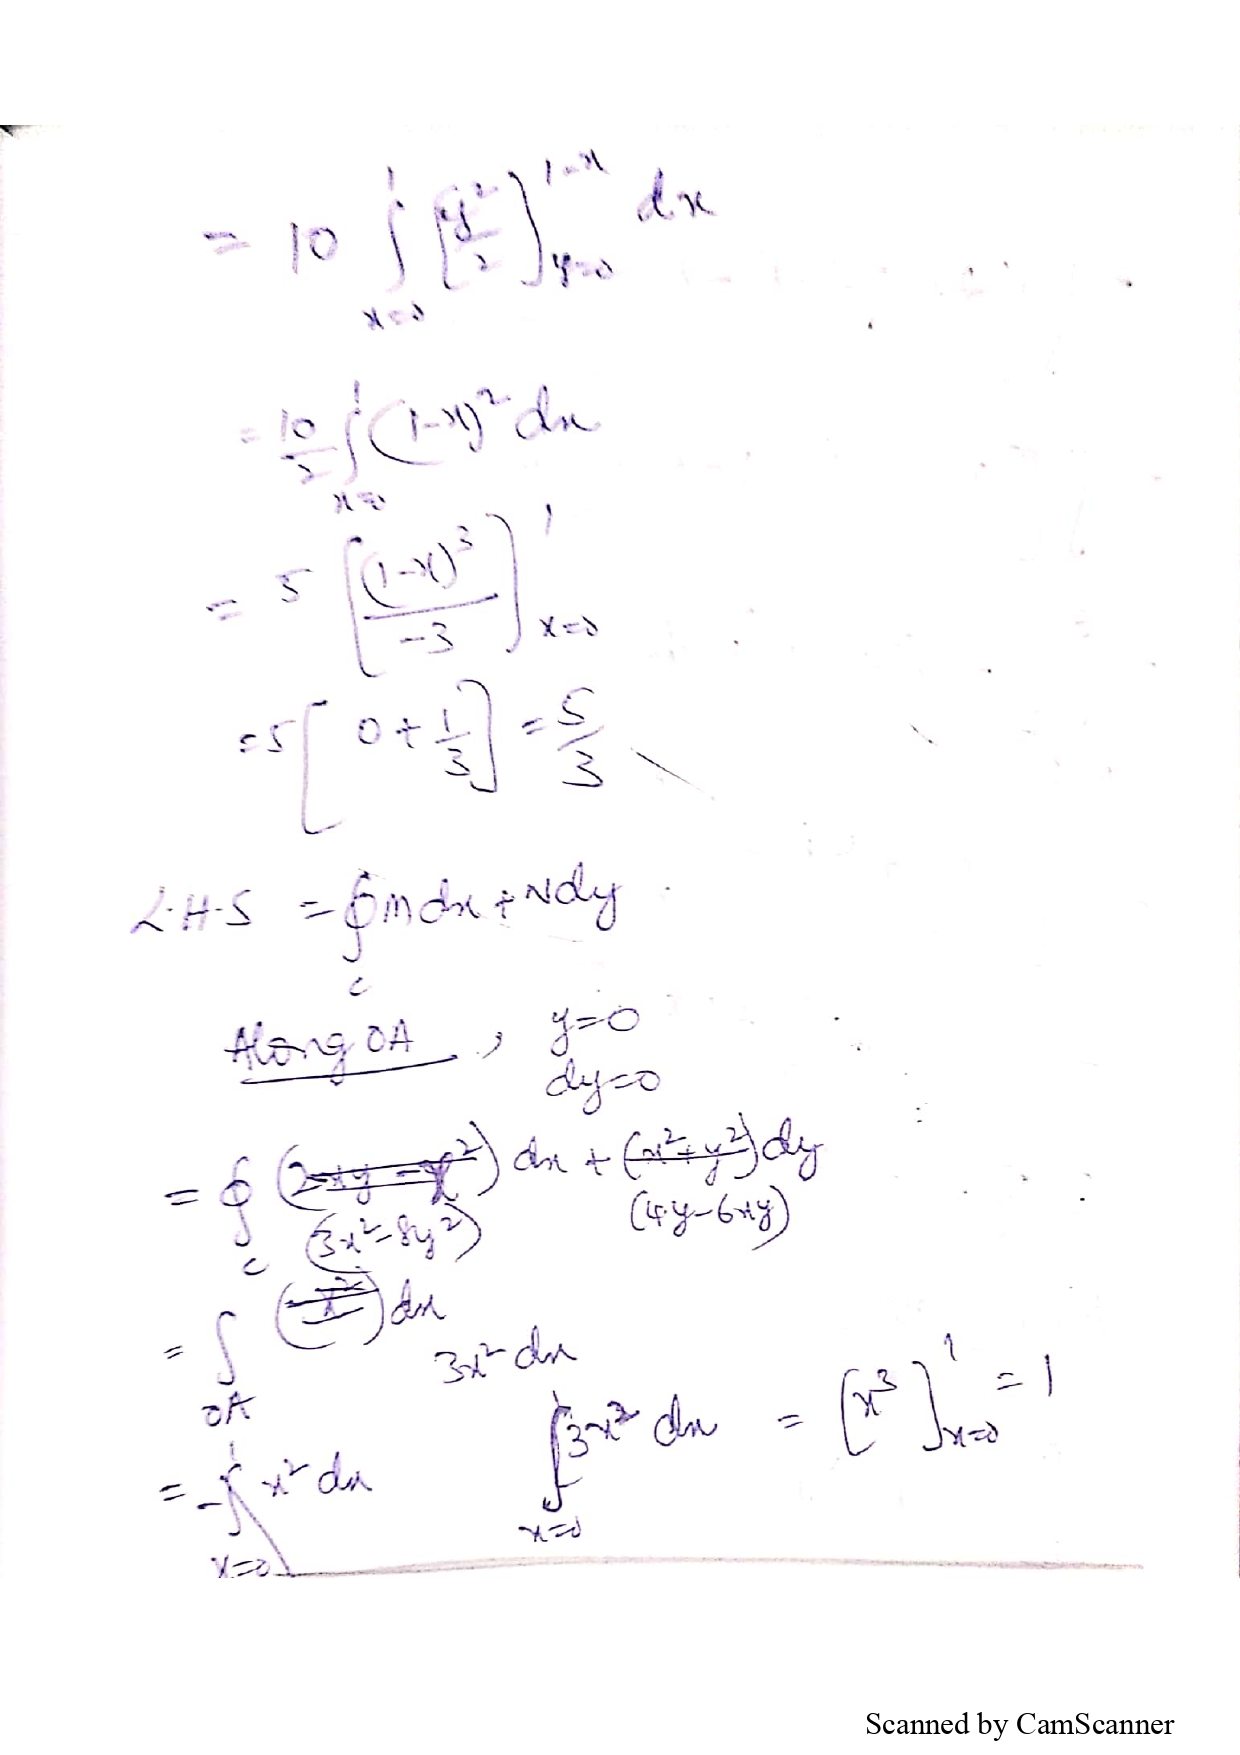 = 10 ∫_{x=0}^{1} [y²/2]_{y=0}^{1-x} dx
= 10/2 ∫_{x=0}^{1} (1-x)² dx
= 5 [(1-x)³/-3]_{x=0}^{1}
= 5 [0 + 1/3] = 5/3
L.H.S = ∮_c M dx + N dy
Along OA , y=0
dy=0
= ∮_c (2xy - x²) dx + (x²+y²) dy
(3x²-8y²) (4y-6xy)
= ∫_{OA} (-x²) dx
3x² dx
= -∫_{x=0}^{1} x² dx ∫_{x=0}^{1} 3x² dx = [x³]_{x=0}^{1} = 1
Scanned by CamScanner